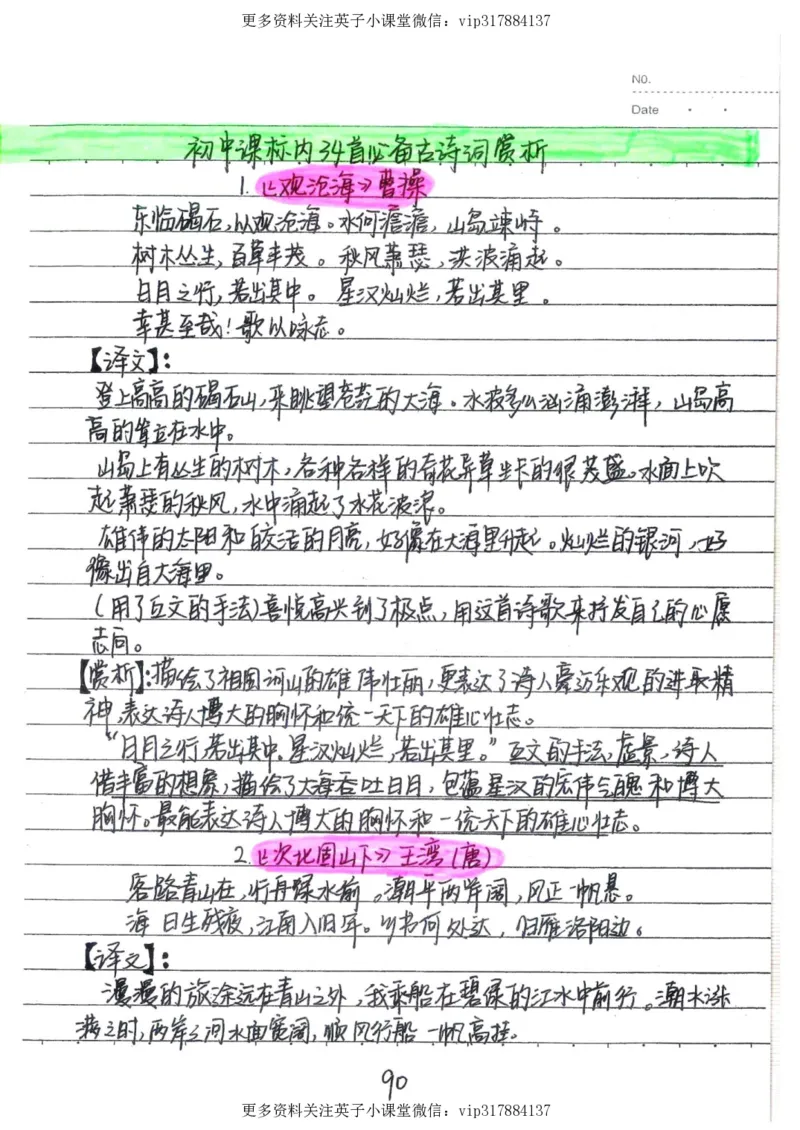 更多资料关注英子小课堂微信：vip317884137
NO.
Date
初中课标内34首必备古诗词赏析
1.《观沧海》曹操
东临碣石，以观沧海。水何澹澹，山岛竦峙。
树木丛生，百草丰茂。秋风萧瑟，洪波涌起。
日月之行，若出其中。星汉灿烂，若出其里。
幸甚至哉！歌以咏志。
【译文】：
登上高高的碣石山，来眺望苍茫的大海。水波多么汹涌澎湃，山岛高
高的耸立在水中。
山岛上有丛生的树木，各种各样的奇花异草生长的很茂盛。水面上吹
起萧瑟的秋风，水中涌起了水花波浪。
雄伟的太阳和皎洁的月亮，好像在大海里升起。灿烂的银河，好
像出自大海里。
（用了互文的手法）喜悦高兴到了极点，用这首诗歌来抒发自己的心愿
志向。
【赏析】：描绘了祖国河山的雄伟壮丽，更表达了诗人豪迈乐观的进取精
神，表达诗人博大的胸怀和统一天下的雄心壮志。
“日月之行，若出其中。星汉灿烂，若出其里。”互文的手法，虚景，诗人
借丰富的想象，描绘了大海吞吐日月，包蕴星汉的宏伟气魄和博大
胸怀。最能表达诗人博大的胸怀和一统天下的雄心壮志。
2.《次北固山下》王湾（唐）
客路青山在，行舟绿水前。潮平两岸阔，风正一帆悬。
海日生残夜，江南入旧年。乡书何处达，归雁洛阳边。
【译文】：
漫漫的旅途远在青山之外，我乘船在碧绿的江水中前行。潮水涨
满之时，两岸之间水面宽阔，顺风行船一帆高挂。
90
更多资料关注英子小课堂微信：vip317884137